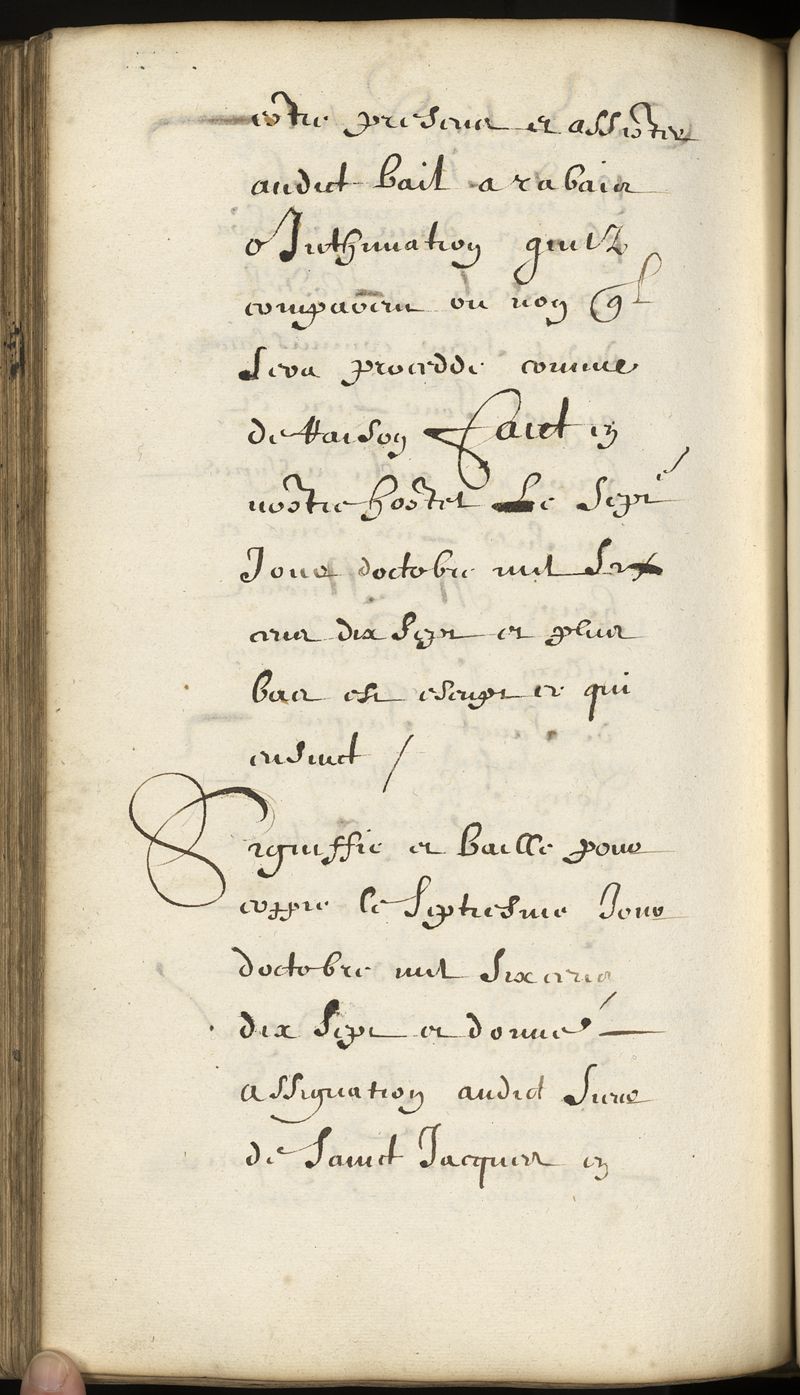 estre present et assister
audict bail a rabais
o Inthimation quilz
comparent ou non
sera procedde comme
de Raison Faict en
nostre hostel Le Sept.e
Jour doctobre mil Six
cens dix Sept et plus
bas est escript ce qui
ensuict /
Signiffie et baille pour
coppie le Septiesme Jour
doctobre mil Six cens
dix Sept et donné
assignation audict Sieur
de Sainct Jacques en